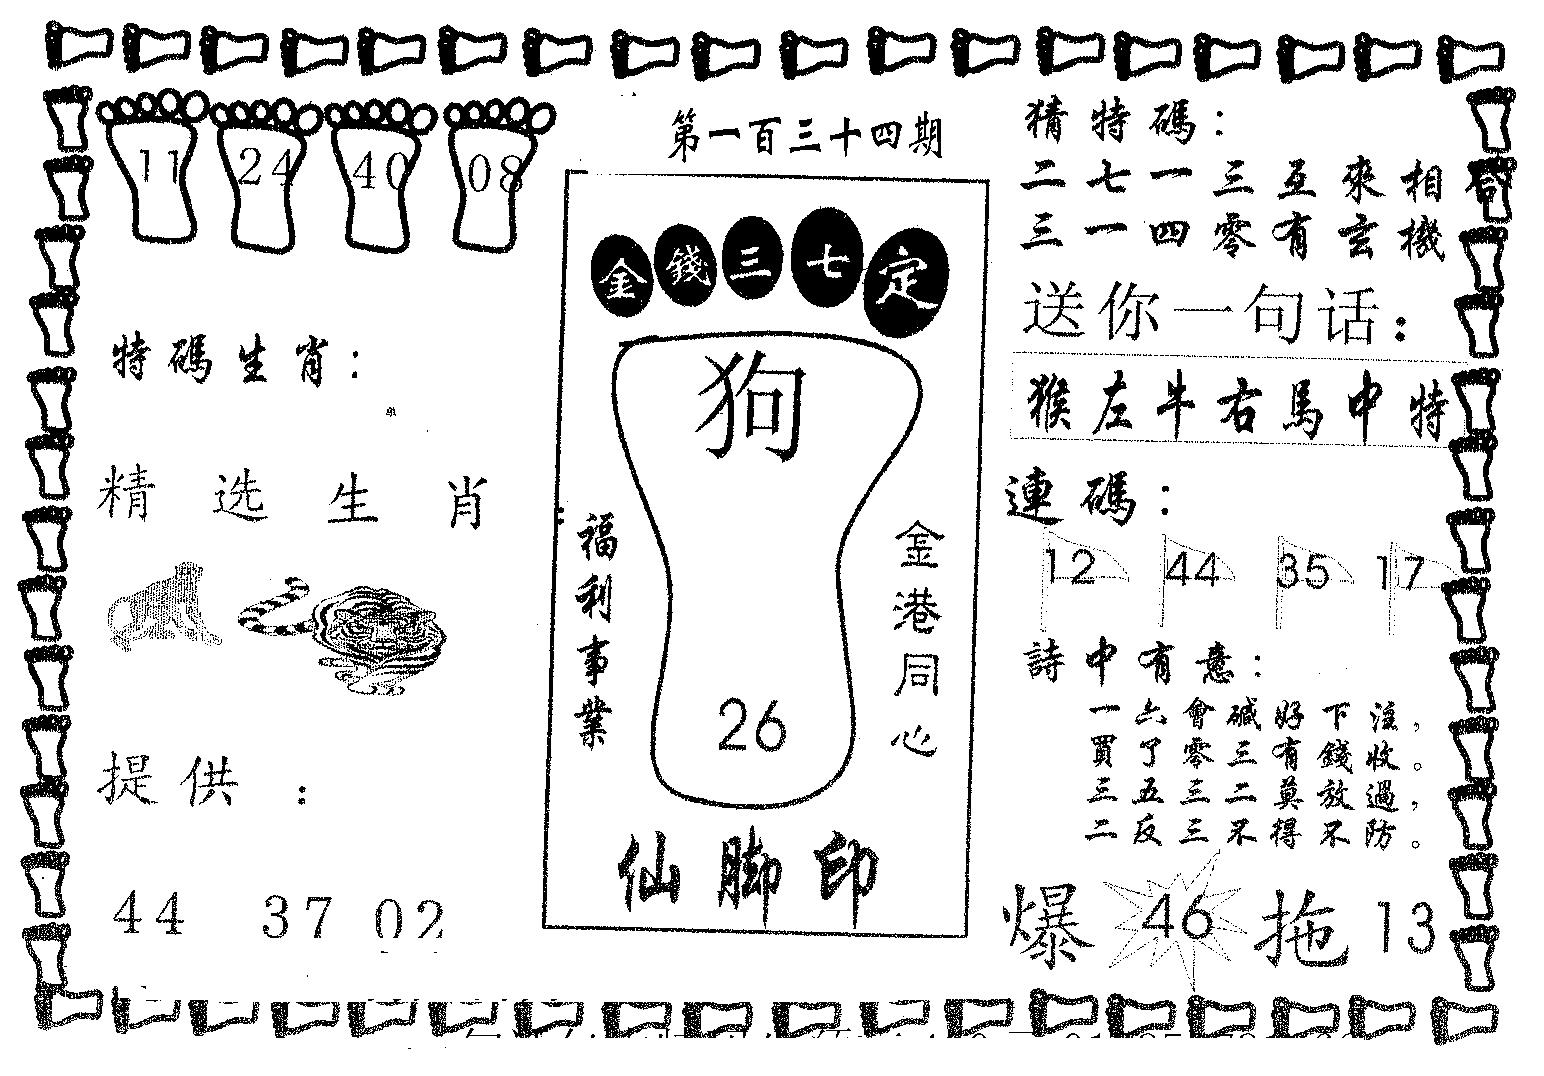 第一百三十四期
11 24 40 08
特碼生肖：
单
精选生肖
提供：
44 37 02
金錢三七定
狗
26
福利事業
金港同心
仙脚印
猜特碼：
二七一三互來相
三一四零有玄機
送你一句话：
猴左牛右馬中特
連碼：
12 44 35 17
詩中有意：
一六會碱好下注，
買了零三有錢收。
三五三二莫放過，
二反三不得不防。
爆 46 拖 13